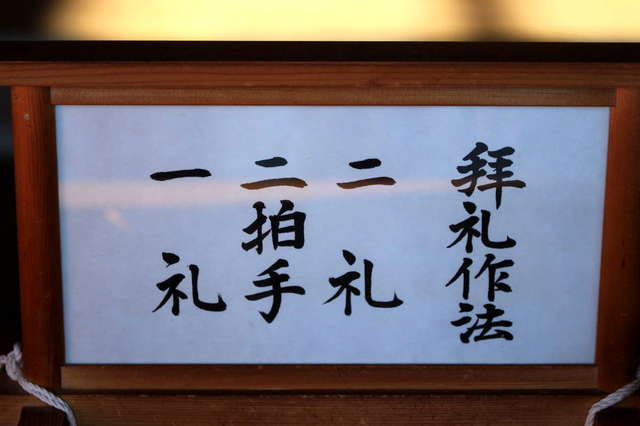 拝礼作法
二礼
二拍手
一礼